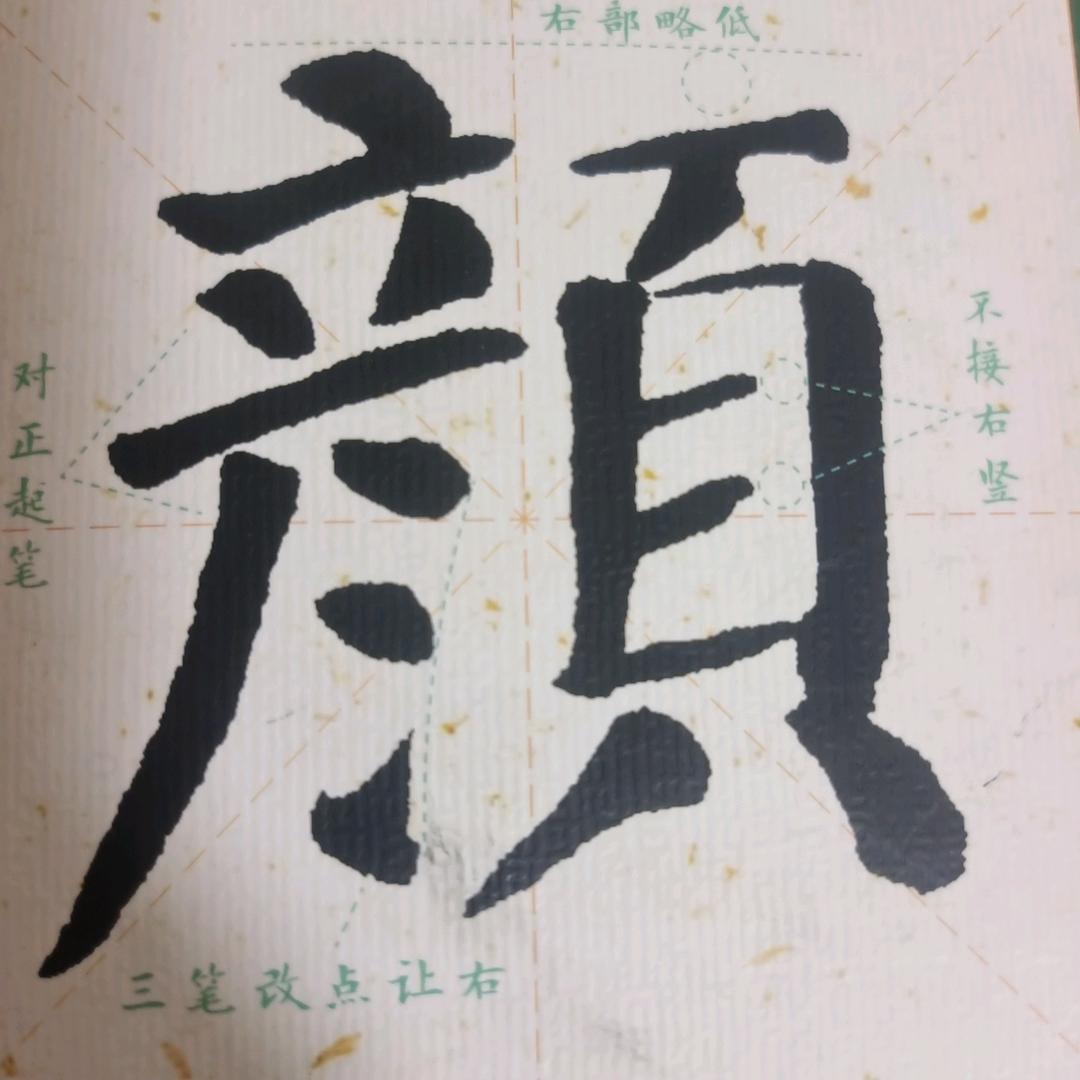 右部略低
顔
对正起笔
不接右竖
三笔改点让右